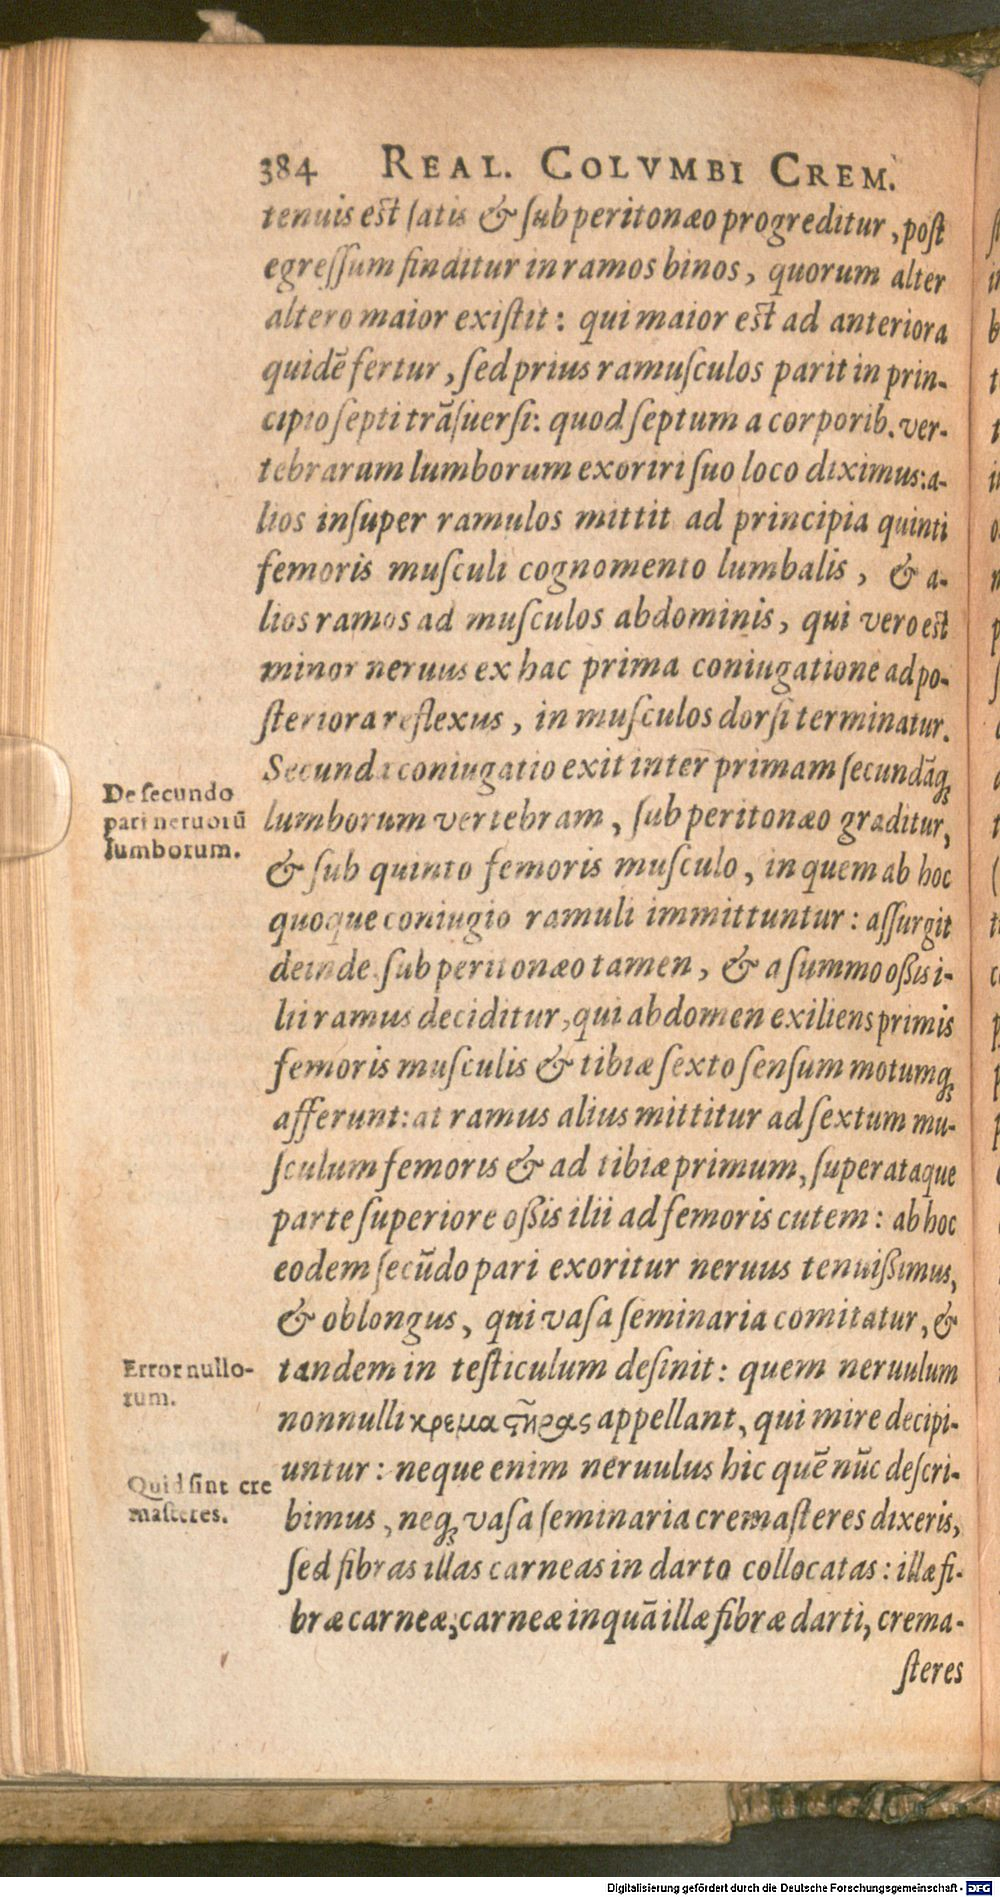 384 REAL. COLVMBI CREM.
tenuis est satis & sub peritonæo progreditur, post
egressum finditur in ramos binos, quorum alter
altero maior existit: qui maior est ad anteriora
quidē fertur, sed prius ramusculos parit in prin-
cipio septi trāsuersi: quod septum a corporib. ver-
tebrarum lumborum exoriri suo loco diximus: a-
lios insuper ramulos mittit ad principia quinti
femoris musculi cognomento lumbalis, & a-
lios ramos ad musculos abdominis, qui vero est
minor neruus ex hac prima coniugatione ad po-
steriora reflexus, in musculos dorsi terminatur.
Secunda coniugatio exit inter primam secundāq;
De secundo
pari neruorū
lumborum.
lumborum vertebram, sub peritonæo graditur,
& sub quinto femoris musculo, in quem ab hoc
quoque coniugio ramuli immittuntur: assurgit
deinde sub peritonæo tamen, & a summo oßis i-
lii ramus deciditur, qui abdomen exiliens primis
femoris musculis & tibiæ sexto sensum motumq;
afferunt: at ramus alius mittitur ad sextum mu-
sculum femoris & ad tibiæ primum, superataque
parte superiore oßis ilii ad femoris cutem: ab hoc
eodem secūdo pari exoritur neruus tenuißimus,
& oblongus, qui vasa seminaria comitatur, &
Error nullo-
rum.
tandem in testiculum desinit: quem neruulum
nonnulli κρεμαςῆρας appellant, qui mire decipi-
untur: neque enim neruulus hic quē nūc descri-
Quid sint cre
masteres.
bimus, neq; vasa seminaria cremasteres dixeris,
sed fibras illas carneas in darto collocatas: illæ fi-
bræ carneæ, carneæ inquā illæ fibræ darti, crema-
steres
Digitalisierung gefördert durch die Deutsche Forschungsgemeinschaft - DFG